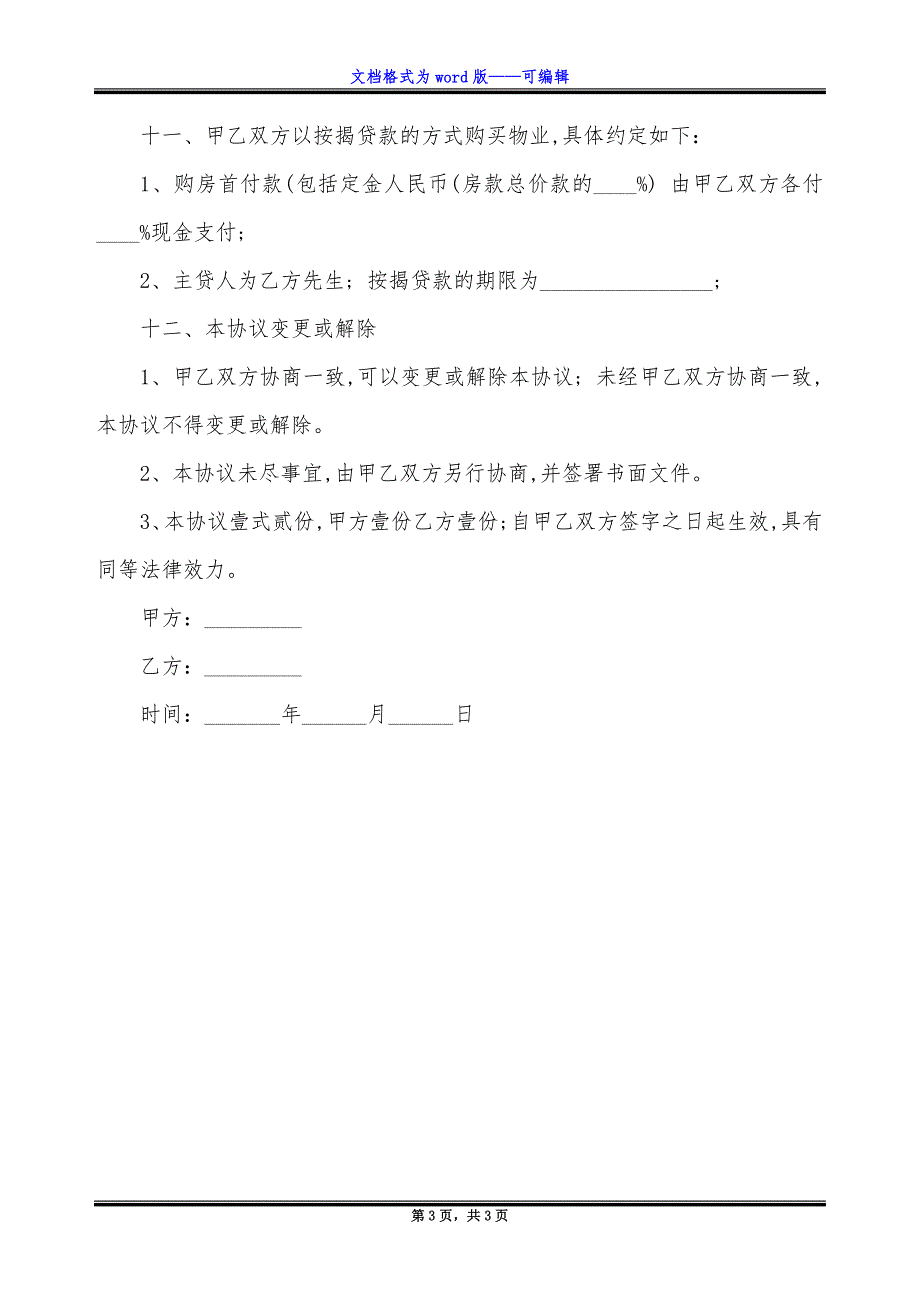 文档格式为 word 版——可编辑
十一、甲乙双方以按揭贷款的方式购买物业,具体约定如下:
1、购房首付款(包括定金人民币(房款总价款的____%) 由甲乙双方各付
____%现金支付;
2、主贷人为乙方先生; 按揭贷款的期限为________________;
十二、本协议变更或解除
1、甲乙双方协商一致,可以变更或解除本协议; 未经甲乙双方协商一致,
本协议不得变更或解除。
2、本协议未尽事宜,由甲乙双方另行协商,并签署书面文件。
3、本协议壹式贰份,甲方壹份乙方壹份;自甲乙双方签字之日起生效,具有
同等法律效力。
甲方: _________
乙方: _________
时间: _______年______月______日
第 3 页, 共 3 页